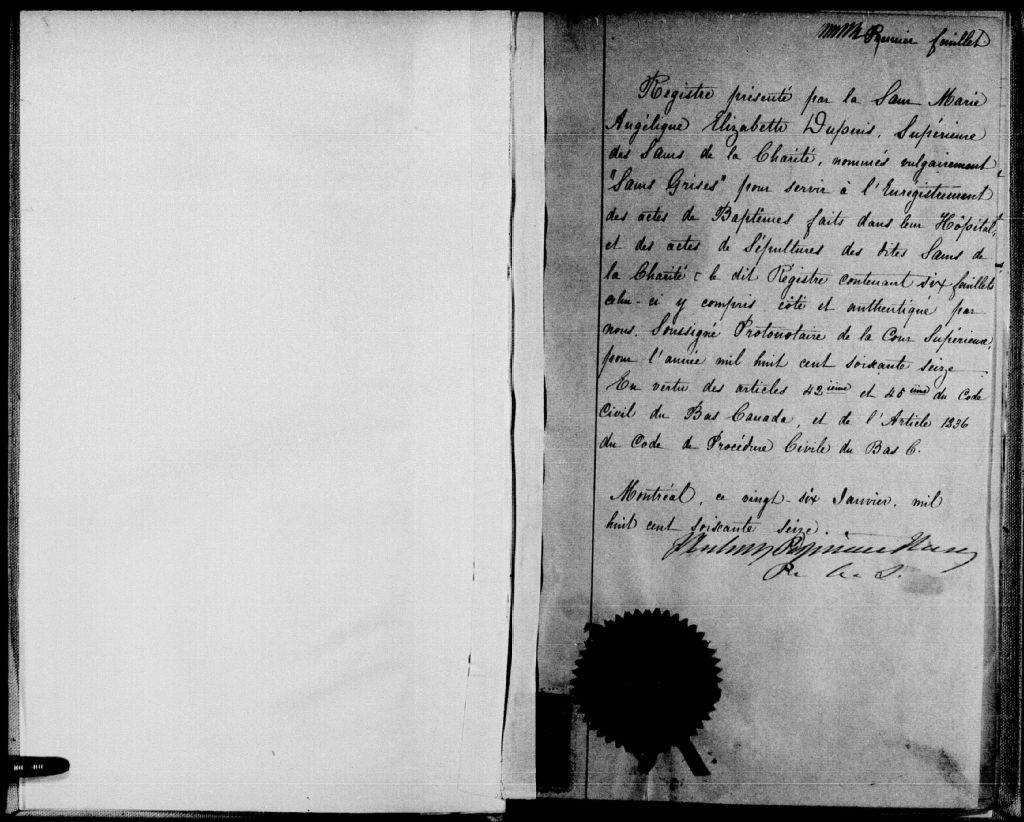 Premier feuillet
Registre présenté par la Sœur Marie
Angélique Elizabeth Dupuis, Supérieure
des Sœurs de la Charité, nommés vulgairement
"Sœurs Grises" pour servir à l'Enregistrement
des actes de Baptêmes faits dans leur Hôpital,
et des actes de Sépultures des dites Sœurs de
la Charité & le dit Régistre contenant six feuillets
celui-ci y compris côté et authentiqué par
nous, Soussigné Protonotaire de la Cour Supérieure,
pour l'année mil huit cent soixante seize
En vertu des articles 42ième et 45ième du Code
Civil du Bas Canada, et de l'Article 1236
du Code de Procédure Civile du Bas C.
Montréal, ce vingt-six Janvier, mil
huit cent soixante seize.